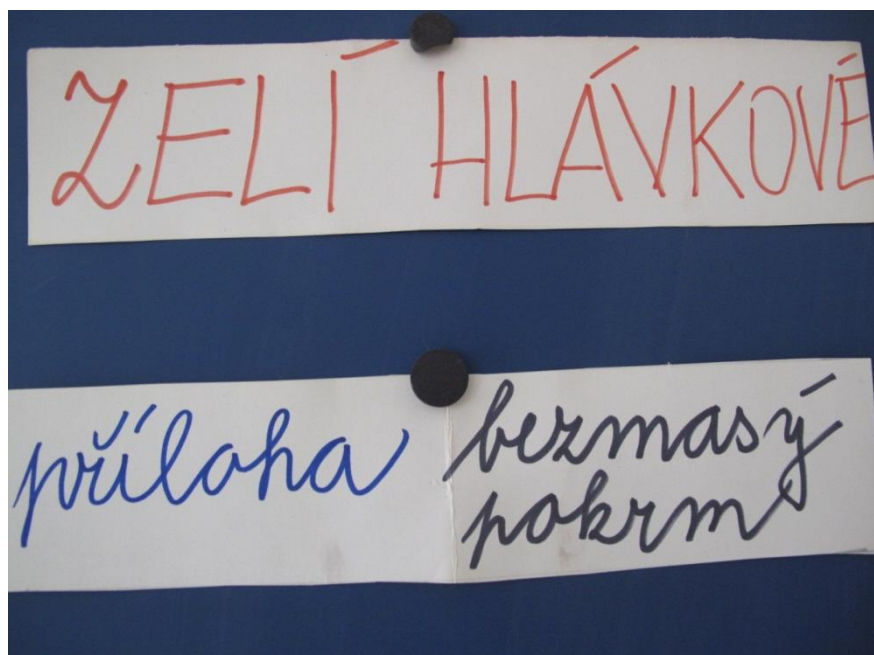 ZELÍ HLÁVKOVÉ
příloha
bezmasý
pokrm